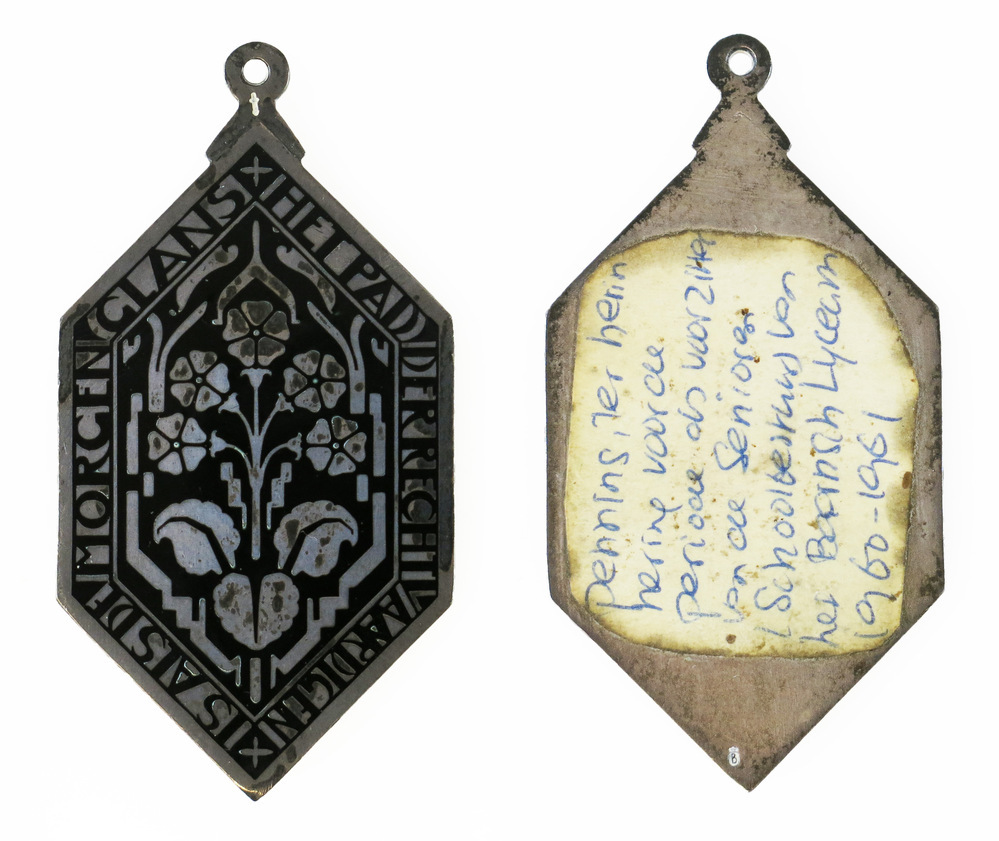 HET PAD DER RECHTVAARDIGEN
IS ALS DE MORGENGLANS
penning ter herin
nering voor de
periode als voorzitter
van de Senioren
(Schoolbestuur) van
het Baarnsch Lyceum
1960-1961
8